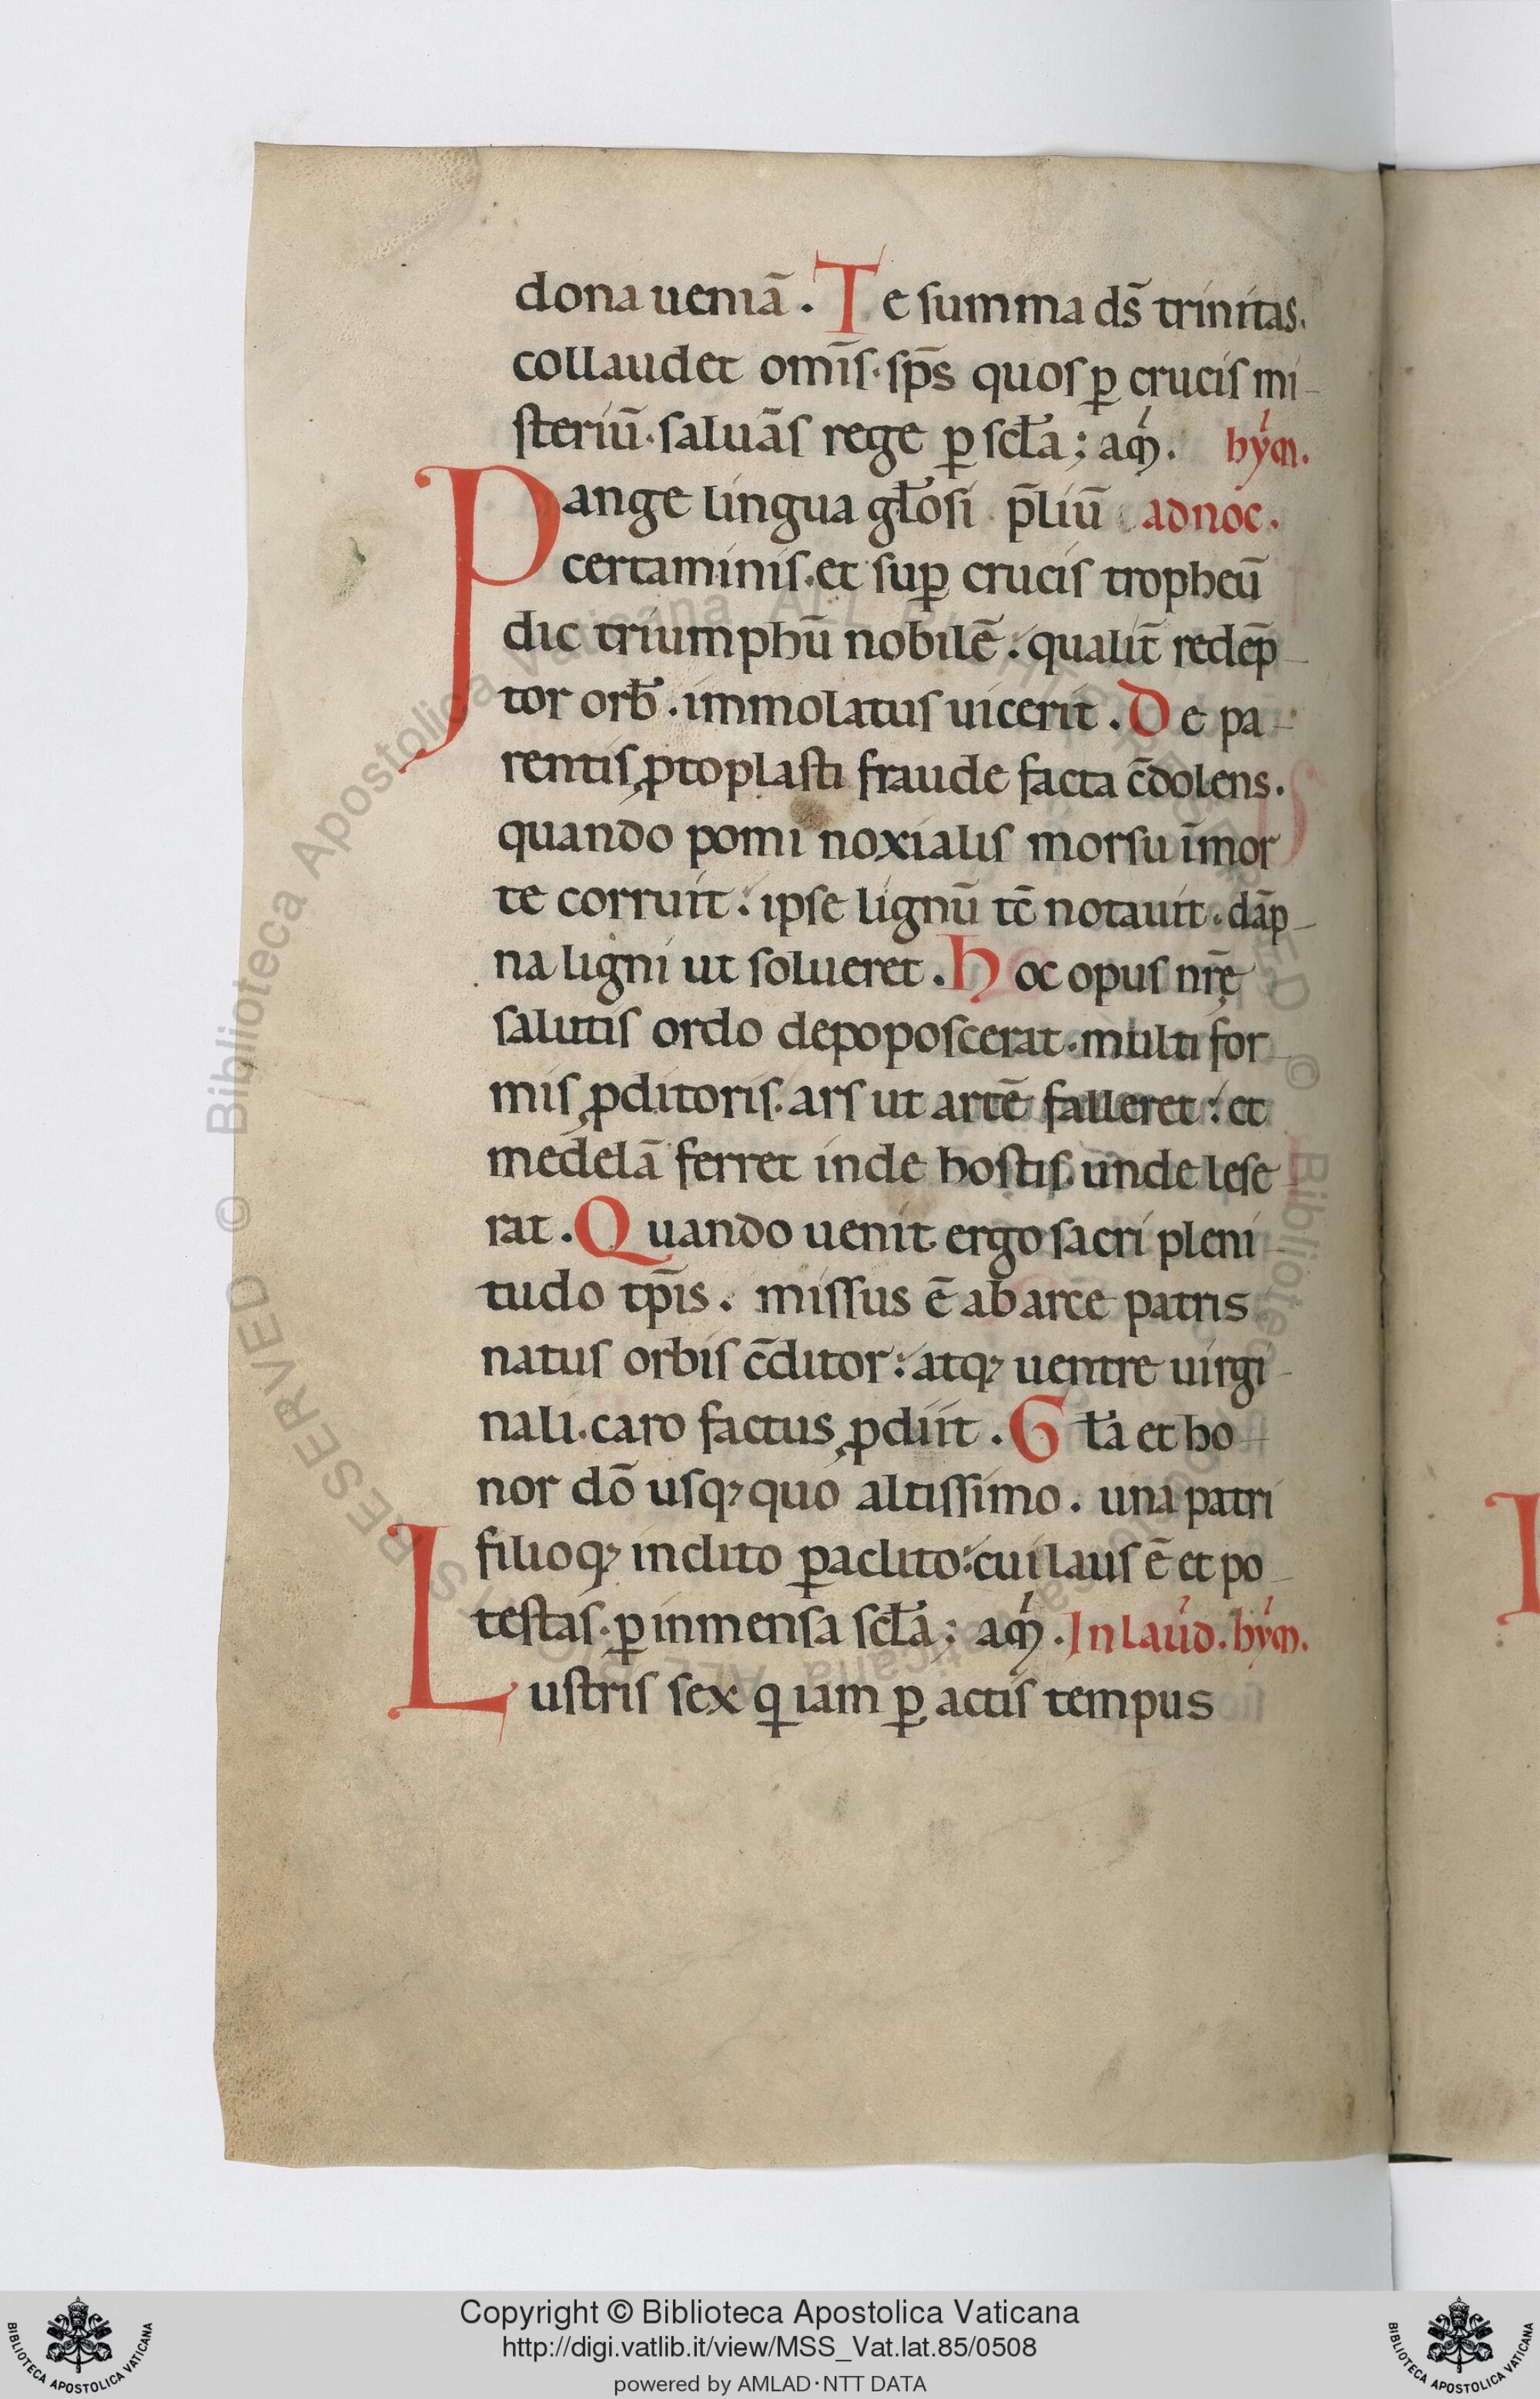 dona ueniā. Te summa ds̄ trinitas.
collaudet om̄is. sp̄s quos ꝑ crucis mi-
steriū. saluās rege ꝑ scła; am̄. hym̄.
Pange lingua głosi p̄liū ad noc.
certaminis. et suꝑ crucis tropheū
dic triumphū nobilē: qualit̄ redēp-
tor orƀ. immolatus uicerit. De pa-
rentis ꝓtoplasti fraude facta c̄dolens.
quando pomi noxialis morsu īmor
te corruit: ipse lignū tc̄ notauit. dāp-
na ligni ut solueret. Hoc opus nr̄ę
salutis ordo depoposcerat. multifor-
mis ꝓditoris. ars ut artē falleret: et
medelā ferret inde hostis. unde lese-
rat. Quando uenit ergo sacri pleni-
tudo tp̄is. missus ē ab arce patris
natus orbis c̄ditor: atqꝫ uentre uirgi-
nali. caro factus ꝓdiit. Gła et ho-
nor dō usqꝫquo altissimo. una patri
filioqꝫ inclito ꝑaclito: cui laus ē et po-
testas. ꝑ inmensa scła; am̄. In laud. hym̄.
Lustris sex q iam ꝑactis tempus
© Biblioteca Apostolica Vaticana ALL RIGHTS RESERVED
Copyright © Biblioteca Apostolica Vaticana
http://digi.vatlib.it/view/MSS_Vat.lat.85/0508
powered by AMLAD·NTT DATA
BIBLIOTECA APOSTOLICA VATICANA
BIBLIOTECA APOSTOLICA VATICANA